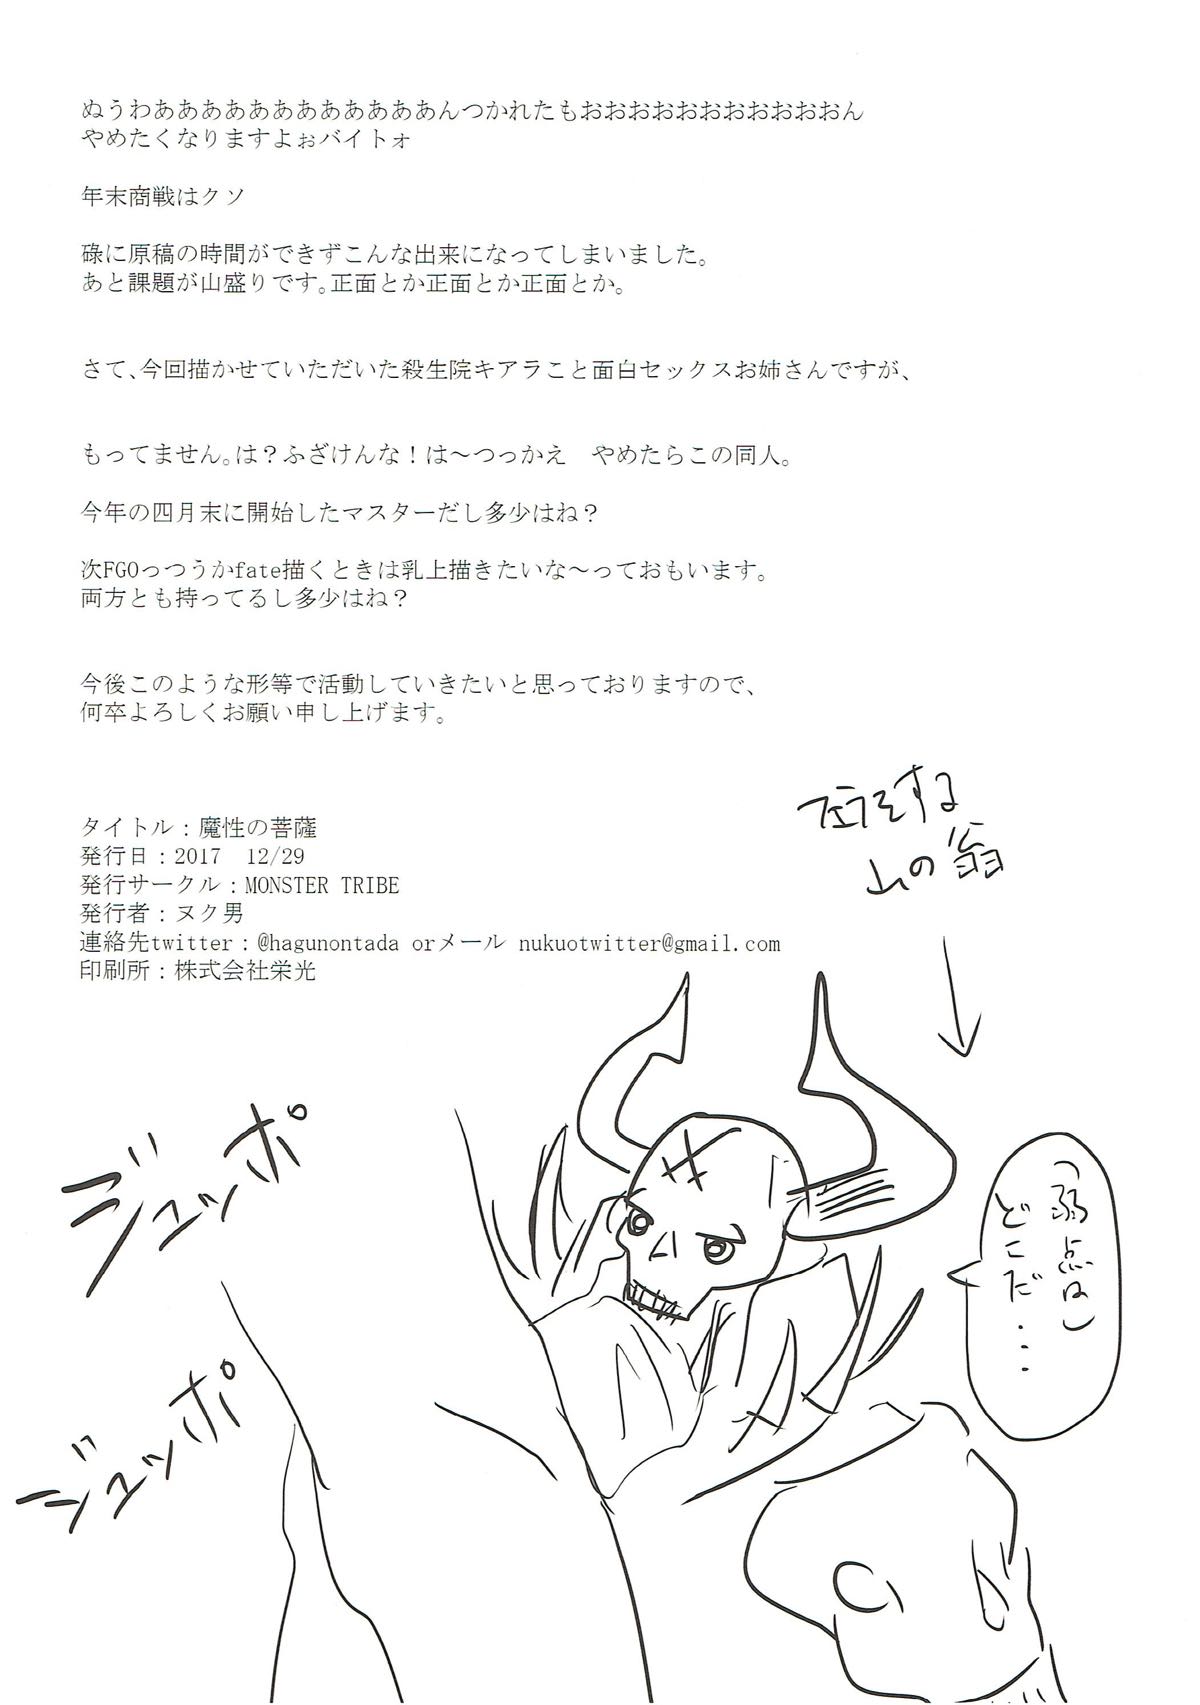 ぬうわああああああああああああんつかれたもおおおおおおおおおおおん
やめたくなりますよぉバイトォ
年末商戦はクソ
碌に原稿の時間ができずこんな出来になってしまいました。
あと課題が山盛りです。正面とか正面とか正面とか。
さて、今回描かせていただいた殺生院キアラこと面白セックスお姉さんですが、
もってません。は？ふざけんな！は～つっかえ　やめたらこの同人。
今年の四月末に開始したマスターだし多少はね？
次FGOっつうかfate描くときは乳上描きたいな～っておもいます。
両方とも持ってるし多少はね？
今後このような形等で活動していきたいと思っておりますので、
何卒よろしくお願い申し上げます。
タイトル：魔性の菩薩
発行日：2017　12/29
発行サークル：MONSTER TRIBE
発行者：ヌク男
連絡先twitter：@hagunontada orメール nukuotwitter@gmail.com
印刷所：株式会社栄光
フェラをする
山の翁
（弱点は）
どこだ・・・
ジュッポ
ジュッポ